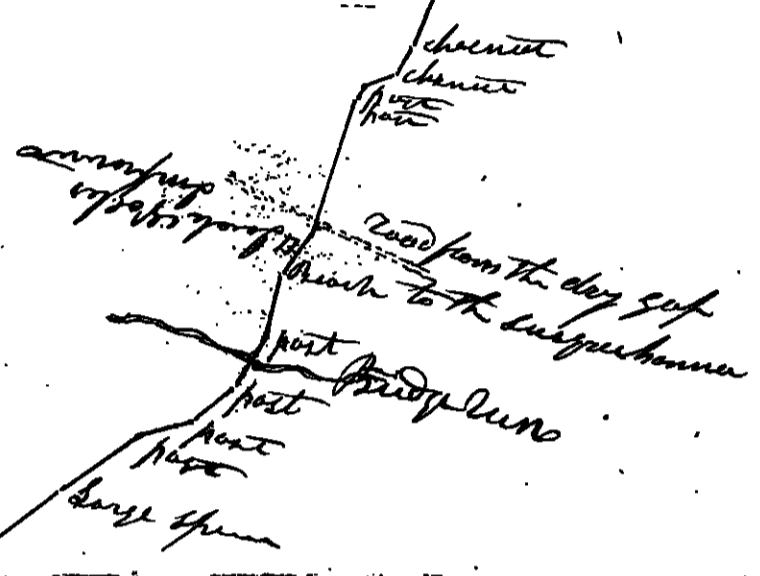 chesnut
chesnut
post
post
road from the dry gap
to the Susquehanna
Beach
post
Bridge Run
post
post
post
Large Spruce